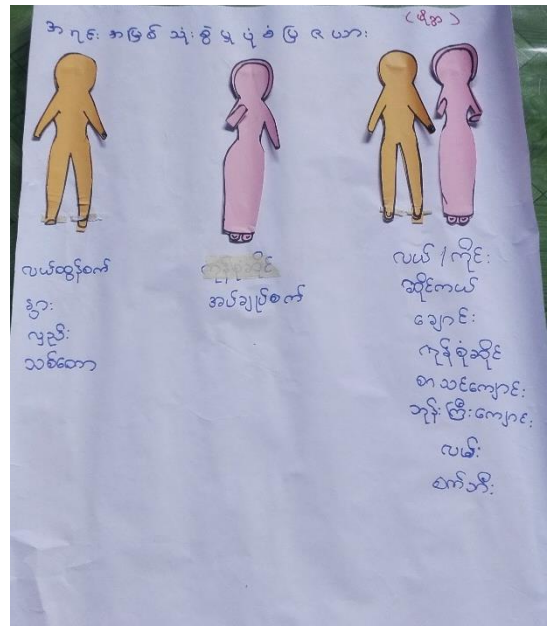 (ရုံစွာ)
အရင်းအမြစ်သုံးစွဲမှုပုံစံပြဇယား
လယ်ထွန်စက်
နွား
လှည်း
သစ်တော
ကုန်စုံဆိုင်
အပ်ချုပ်စက်
လယ်/ကိုင်း
ဆိုင်ကယ်
ချောင်း
ကုန်စုံဆိုင်
စာသင်ကျောင်း
ဘုန်းကြီးကျောင်း
လမ်း
စက်ဘီး